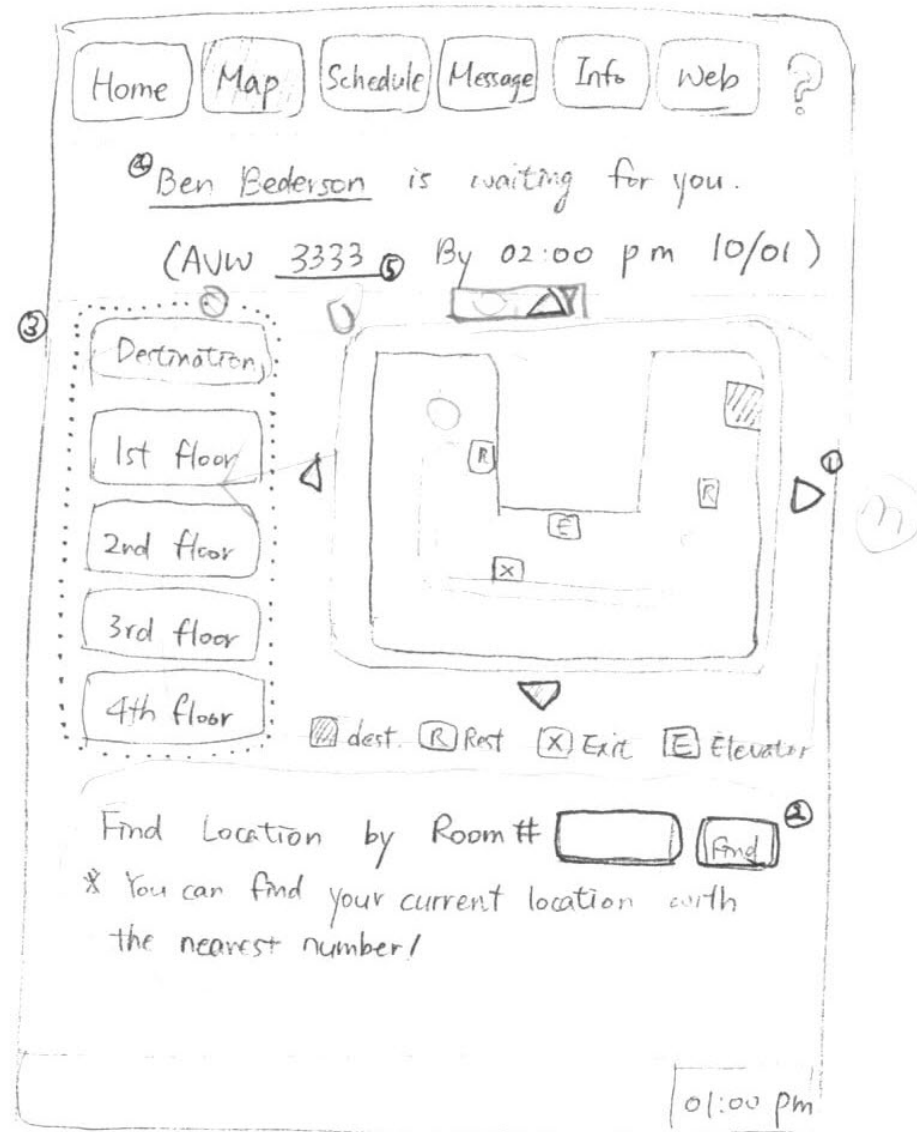 Home Map Schedule Message Info Web ?
④ Ben Bederson is waiting for you.
(AVW 3333 ⑤ By 02:00 pm 10/01)
③
Destination
1st floor
2nd floor
3rd floor
4th floor
R
R
E
X
①
dest. R Rest X Exit E Elevator
Find Location by Room # Find ②
* You can find your current location with
the nearest number!
01:00 pm